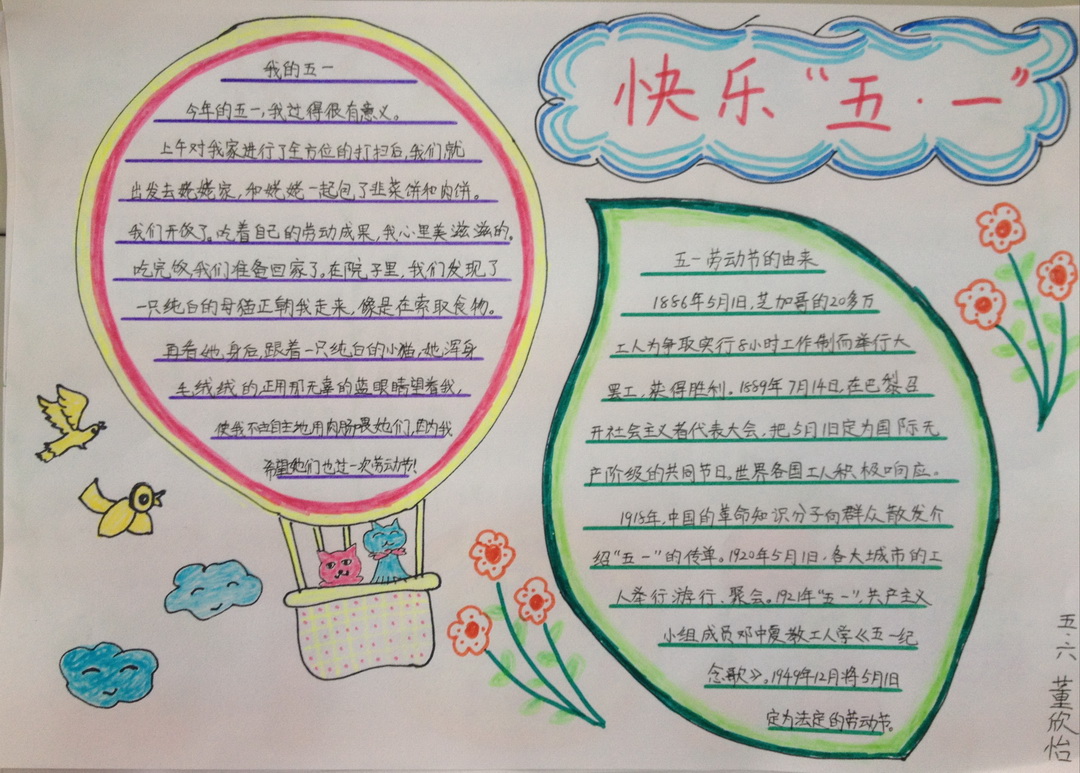 快乐“五·一”
我的五一
今年的五一,我过得很有意义。
上午对我家进行了全方位的打扫后,我们就
出发去姥姥家,和姥姥一起包了韭菜饼和肉饼。
我们开饭了。吃着自己的劳动成果,我心里美滋滋的。
吃完饭,我们准备回家了。在院子里,我们发现了
一只纯白的母猫正朝我走来,像是在索取食物。
再看她,身后,跟着一只纯白的小猫,她,浑身
毛绒绒的,正用那无辜的蓝眼睛望着我,
使我不由自主地用肉肠喂她们,因为我
希望她们也过一次劳动节!
五一劳动节的由来
1886年5月1日,芝加哥的20多万
工人为争取实行8小时工作制而举行大
罢工,获得胜利。1889年7月14日,在巴黎召
开社会主义者代表大会,把5月1日定为国际无
产阶级的共同节日。世界各国工人积极响应。
1918年,中国的革命知识分子向群众散发介
绍“五一”的传单。1920年5月1日,各大城市的工
人举行游行、聚会。1921年“五一”,共产主义
小组成员邓中夏教工人学《五一纪
念歌》。1949年12月将5月1日
定为法定的劳动节。
五·六 董欣怡